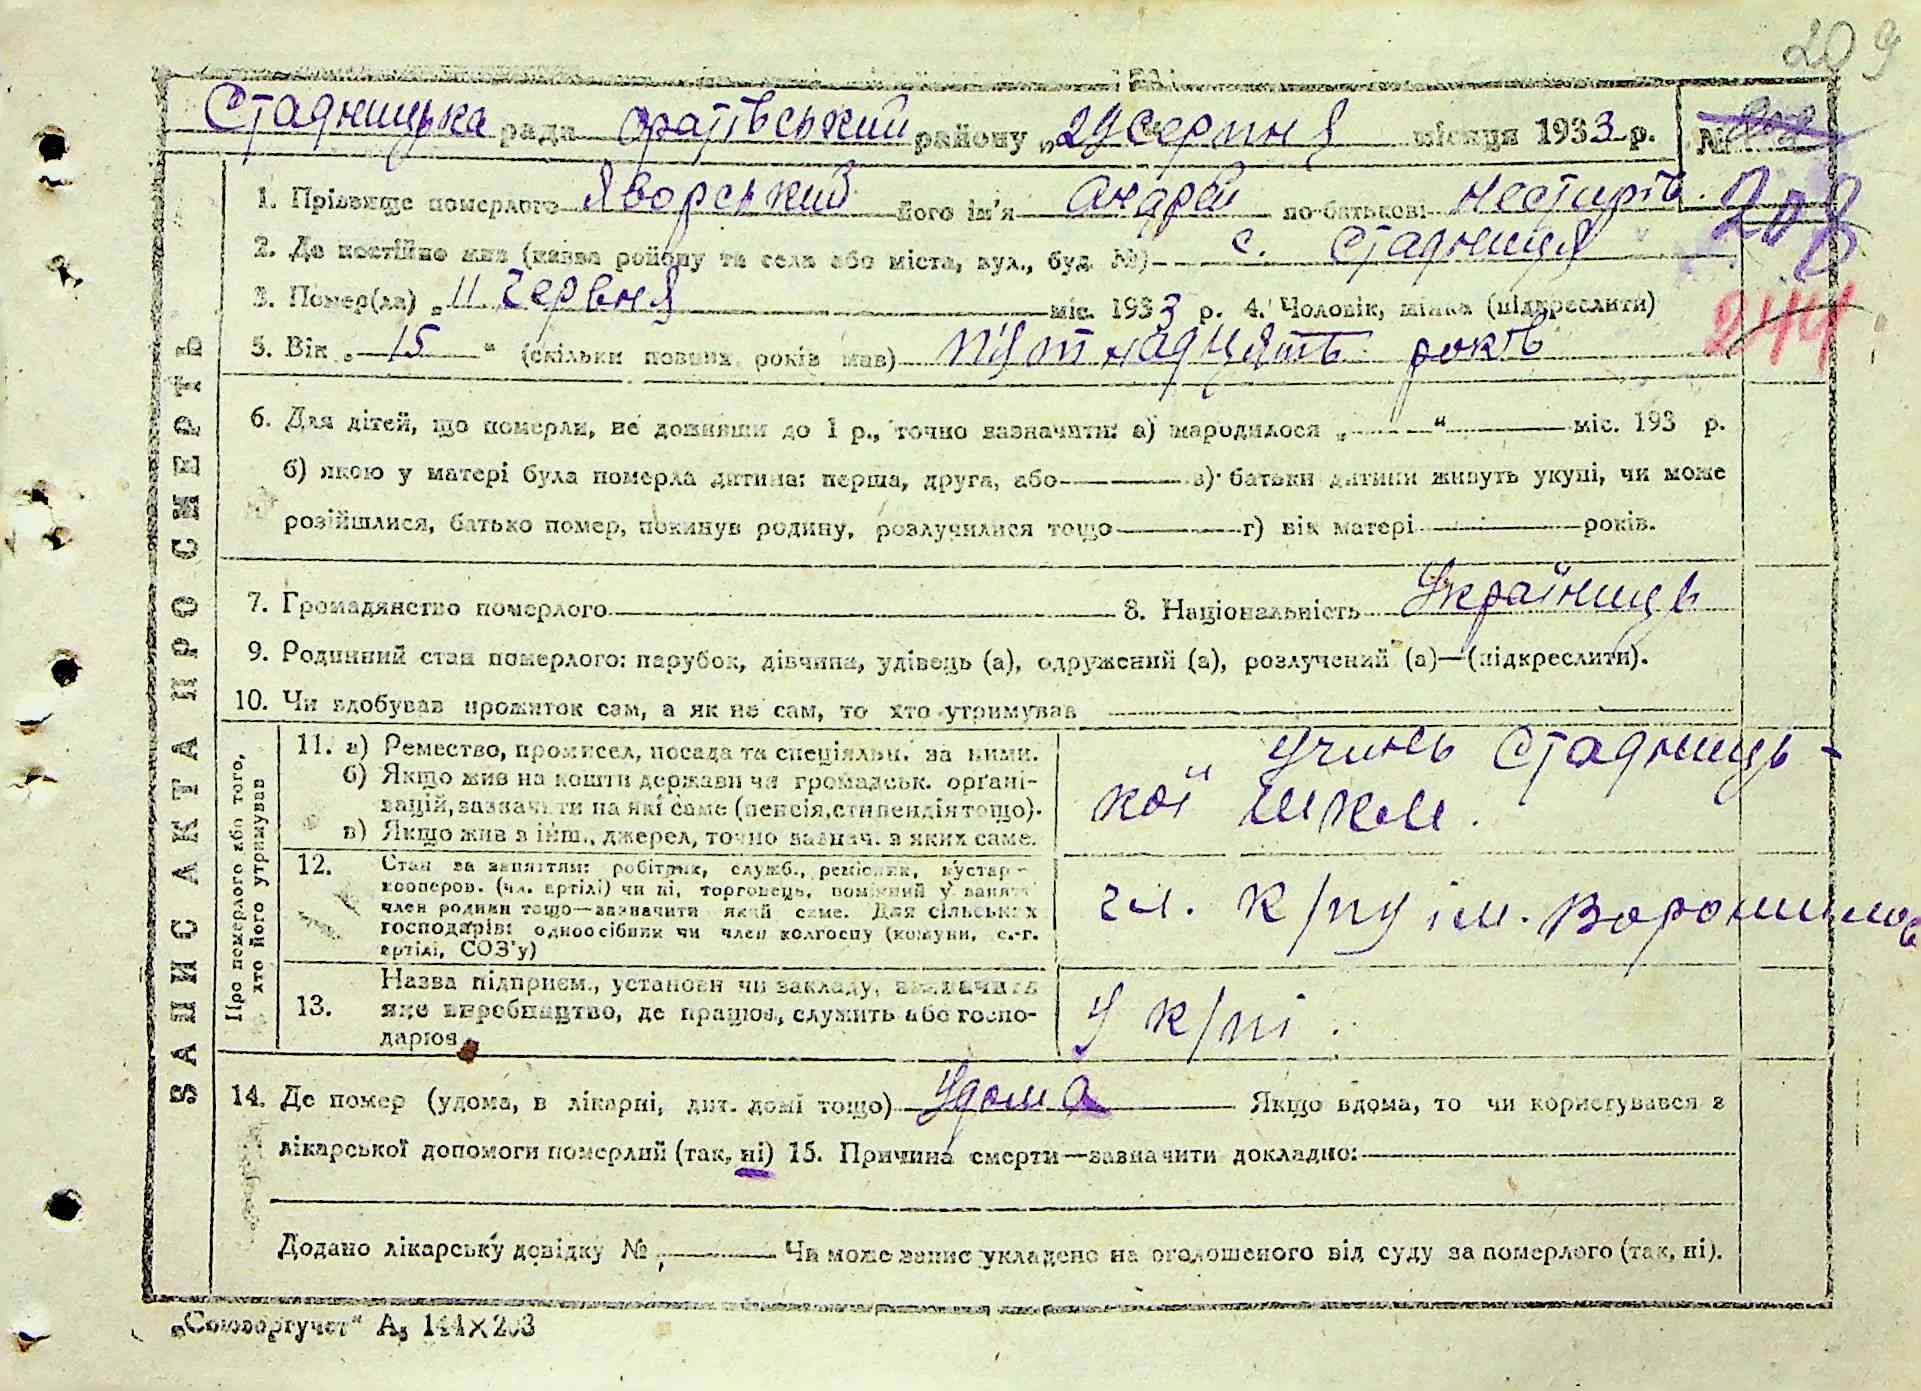 209
Стадницька рада Оратівський району „29 серпня місяця 1933 р. №
208
1. Прізвище померлого Яворський його ім'я Андрей по-батькові Нестирів.
2. Де постійно жив (назва району та села або міста, вул., буд. №) с. Стадниця
3. Помер(ла) „11 червня міс. 1933 р. 4. Чоловік, жінка (підкреслити)
244
5. Вік „ 15 “ (скільки повних років мав) п'ятнадцять років
6. Для дітей, що померли, не доживши до 1 р., точно зазначити: а) народилося „ “ міс. 193 р.
б) якою у матері була померла дитина: перша, друга, або в) батьки дитини живуть укупі, чи може
розійшлися, батько помер, покинув родину, розлучилися тощо г) вік матері років.
7. Громадянство померлого 8. Національність Українець
9. Родинний стан померлого: парубок, дівчина, удівець (а), одружений (а), розлучений (а)—(підкреслити).
10. Чи здобував прожиток сам, а як не сам, то хто утримував
ЗАПИС АКТА ПРО СМЕРТЬ
Про померлого або того,
хто його утримував
11. а) Ремество, промисел, посада та спеціяльн. за ними.
б) Якщо жив на кошти держави чи громадськ. орґані-
зацій, зазначити на які саме (пенсія, стипендія тощо).
в) Якщо жив з інш., джерел, точно зазнач. з яких саме.
учинь Стадниць-
кої школи.
12. Стан за заняттям: робітник, служб., ремісник, кустар-
кооперов. (чл. артілі) чи ні, торговець, помічний у занятті
член родини тощо—зазначити який саме. Для сільських
господарів: одноосібник чи член колгоспу (комуни, с.-г.
артілі, СОЗ'у)
чл. к/пу ім. Ворошилов
13. Назва підприєм., установи чи закладу, визначить
яке виробництво, де працює, служить або госпо-
дарює
У к/пі.
14. Де помер (удома, в лікарні, дит. домі тощо) Удома Якщо вдома, то чи користувався з
лікарської допомоги померлий (так, ні) 15. Причина смерти—зазначити докладно:
Додано лікарську довідку № Чи може запис укладено на оголошеного від суду за померлого (так, ні).
„Союзоргучет“ А5 144×203